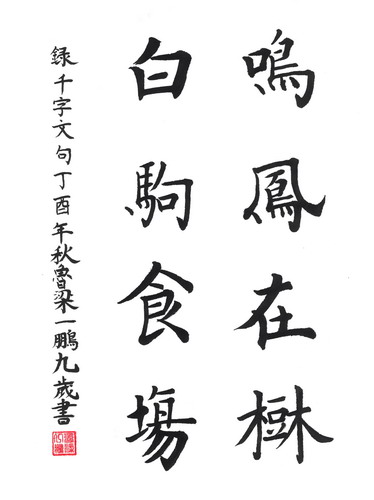 鳴鳳在樹
白駒食塲
録千字文句丁酉年秋魯梁一鵬九歲書